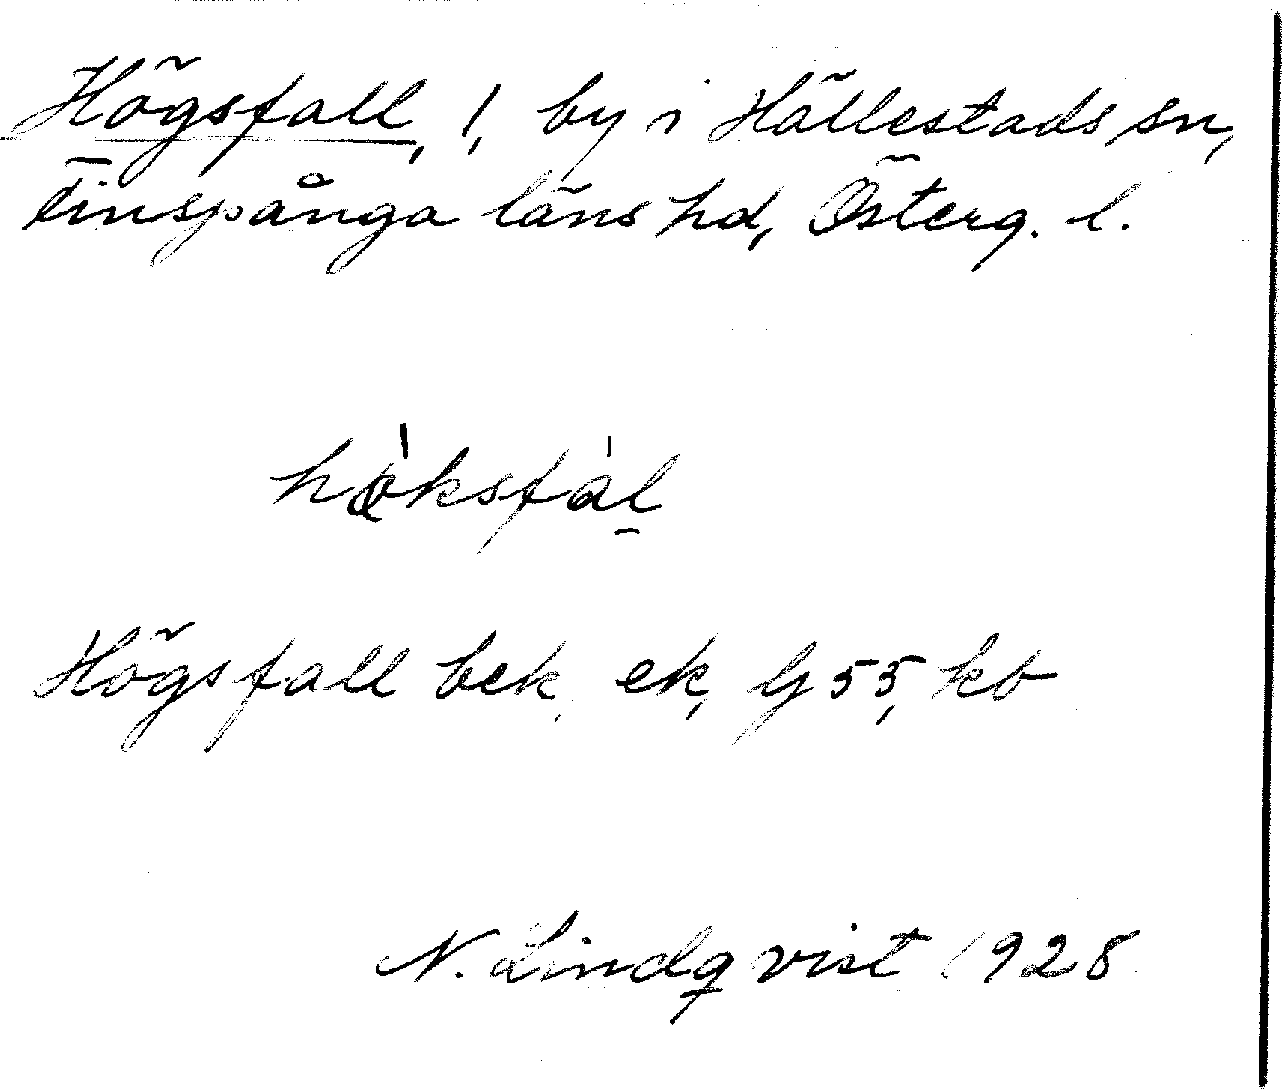 Högsfall, 1, by i Hällestads sn,
Finspånga läns hd, Österg. l.
hö̀ksfàl̠
Högsfall bek, ek, Gj 55, kb
N. Lindqvist 1928